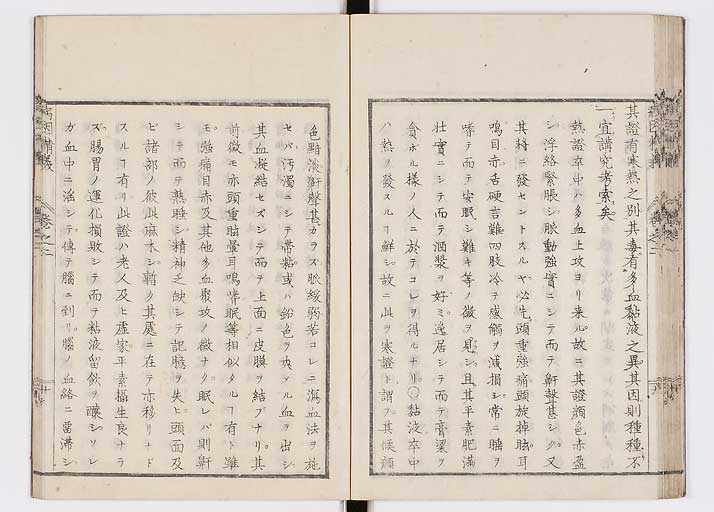 其證有寒熱之別其毒有多血黏液之異其因則種種不
一宜講究考索矣
熱證卒中ハ多血上攻ヨリ来ル故ニ其證顔色赤盈
シ浮絡緊脹シ脈動強實ニシテ而テ鼾聲甚シク又
其將ニ發セントスルヤ必先頭重強痛頭旋掉眩耳
鳴目赤舌硬言難四肢冷テ感觸ヲ減損シ常ニ睡ヲ
嗜テ而テ安眠シ難キ等ノ徴ヲ見シ且其平素肥滿
壮實ニシテ而テ酒漿ヲ好ミ逸居シテ而テ膏粱ヲ
貪ホル樣ノ人ニ於テコレヲ得ルナリ○黏液卒中
ハ熱ヲ發スルヿ鮮シ故ニ此ヲ寒證ト謂フ其候顔
色黯淡鼾聲甚ガラズ脈緩弱若コレニ瀉血法ヲ施
セバ汚濁ニシテ帯黏或ハ鉛色ヲ夾メル血ヲ出シ
其血凝結セズシテ而テ上面ニ皮膜ヲ結ブナリ其
前徴モ亦頭重脳暈耳鳴嗜眠等相似タルヿ有ト雖
モ強痛目赤及其他多血襲攻ノ徴ナク眠レバ則鼾
シテ而テ熟睡シ精神乏缺シテ記臆ヲ失ヒ頭面及
ビ諸部ノ彼此麻木シ暫ク其處ニ在テ亦移リナド
スルヿ有リ此證ハ老人及ヒ虚家平素攝生良ナラ
ズ腸胃ノ運化損敗シテ而テ黏液留飲ヲ釀シソレ
ガ血中ニ淫シテ傳テ腦ニ到リ腦ノ血絡ニ畱滞シ